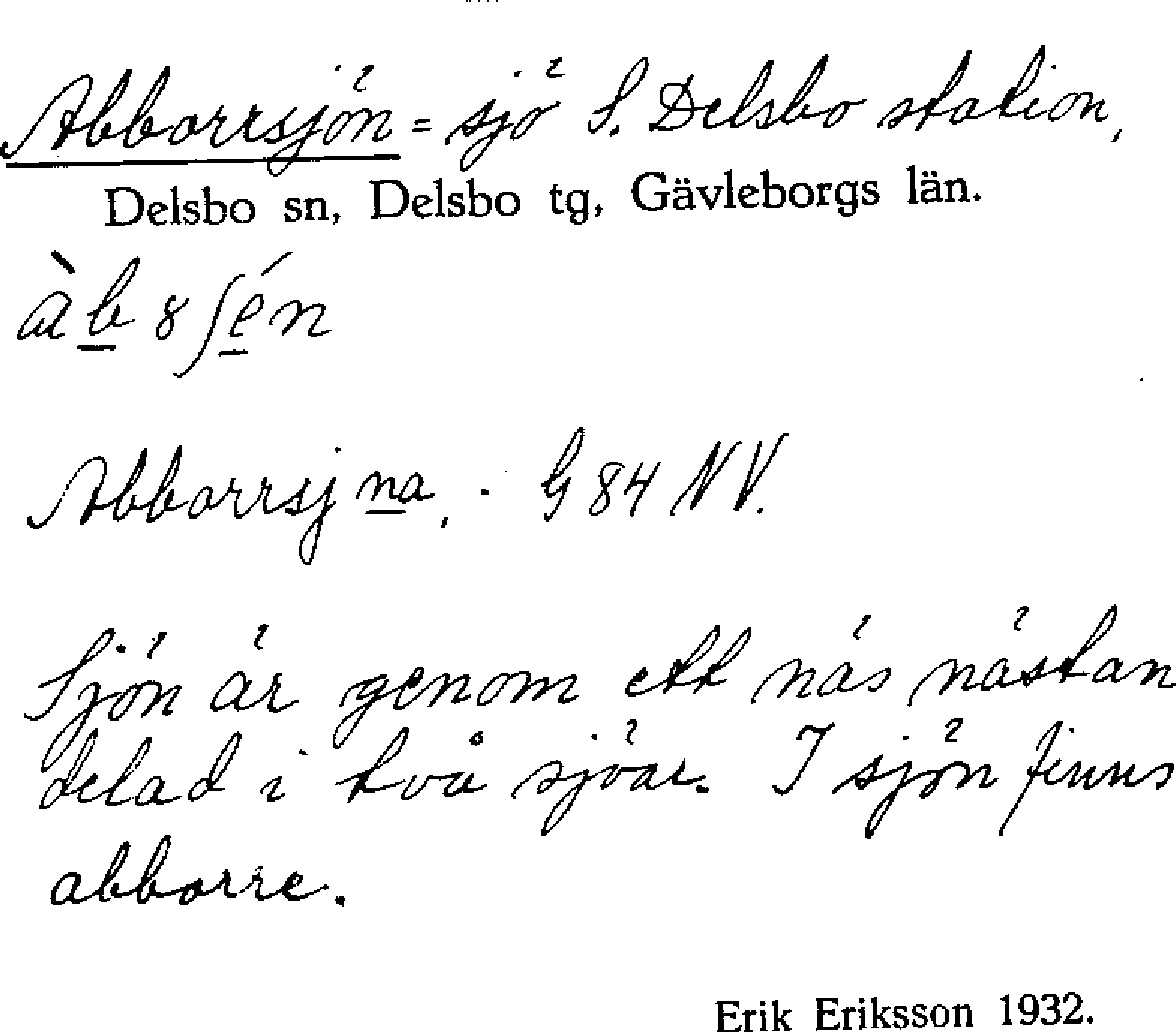 Abborrsjön = sjö S. Delsbo station,
Delsbo sn, Delsbo tg, Gävleborgs län.
àb8ʃén
Abborrsjna, . G 84 NV.
Sjön är genom ett näs nästan
delad i två sjöar. I sjön finns
abborre.
Erik Eriksson 1932.